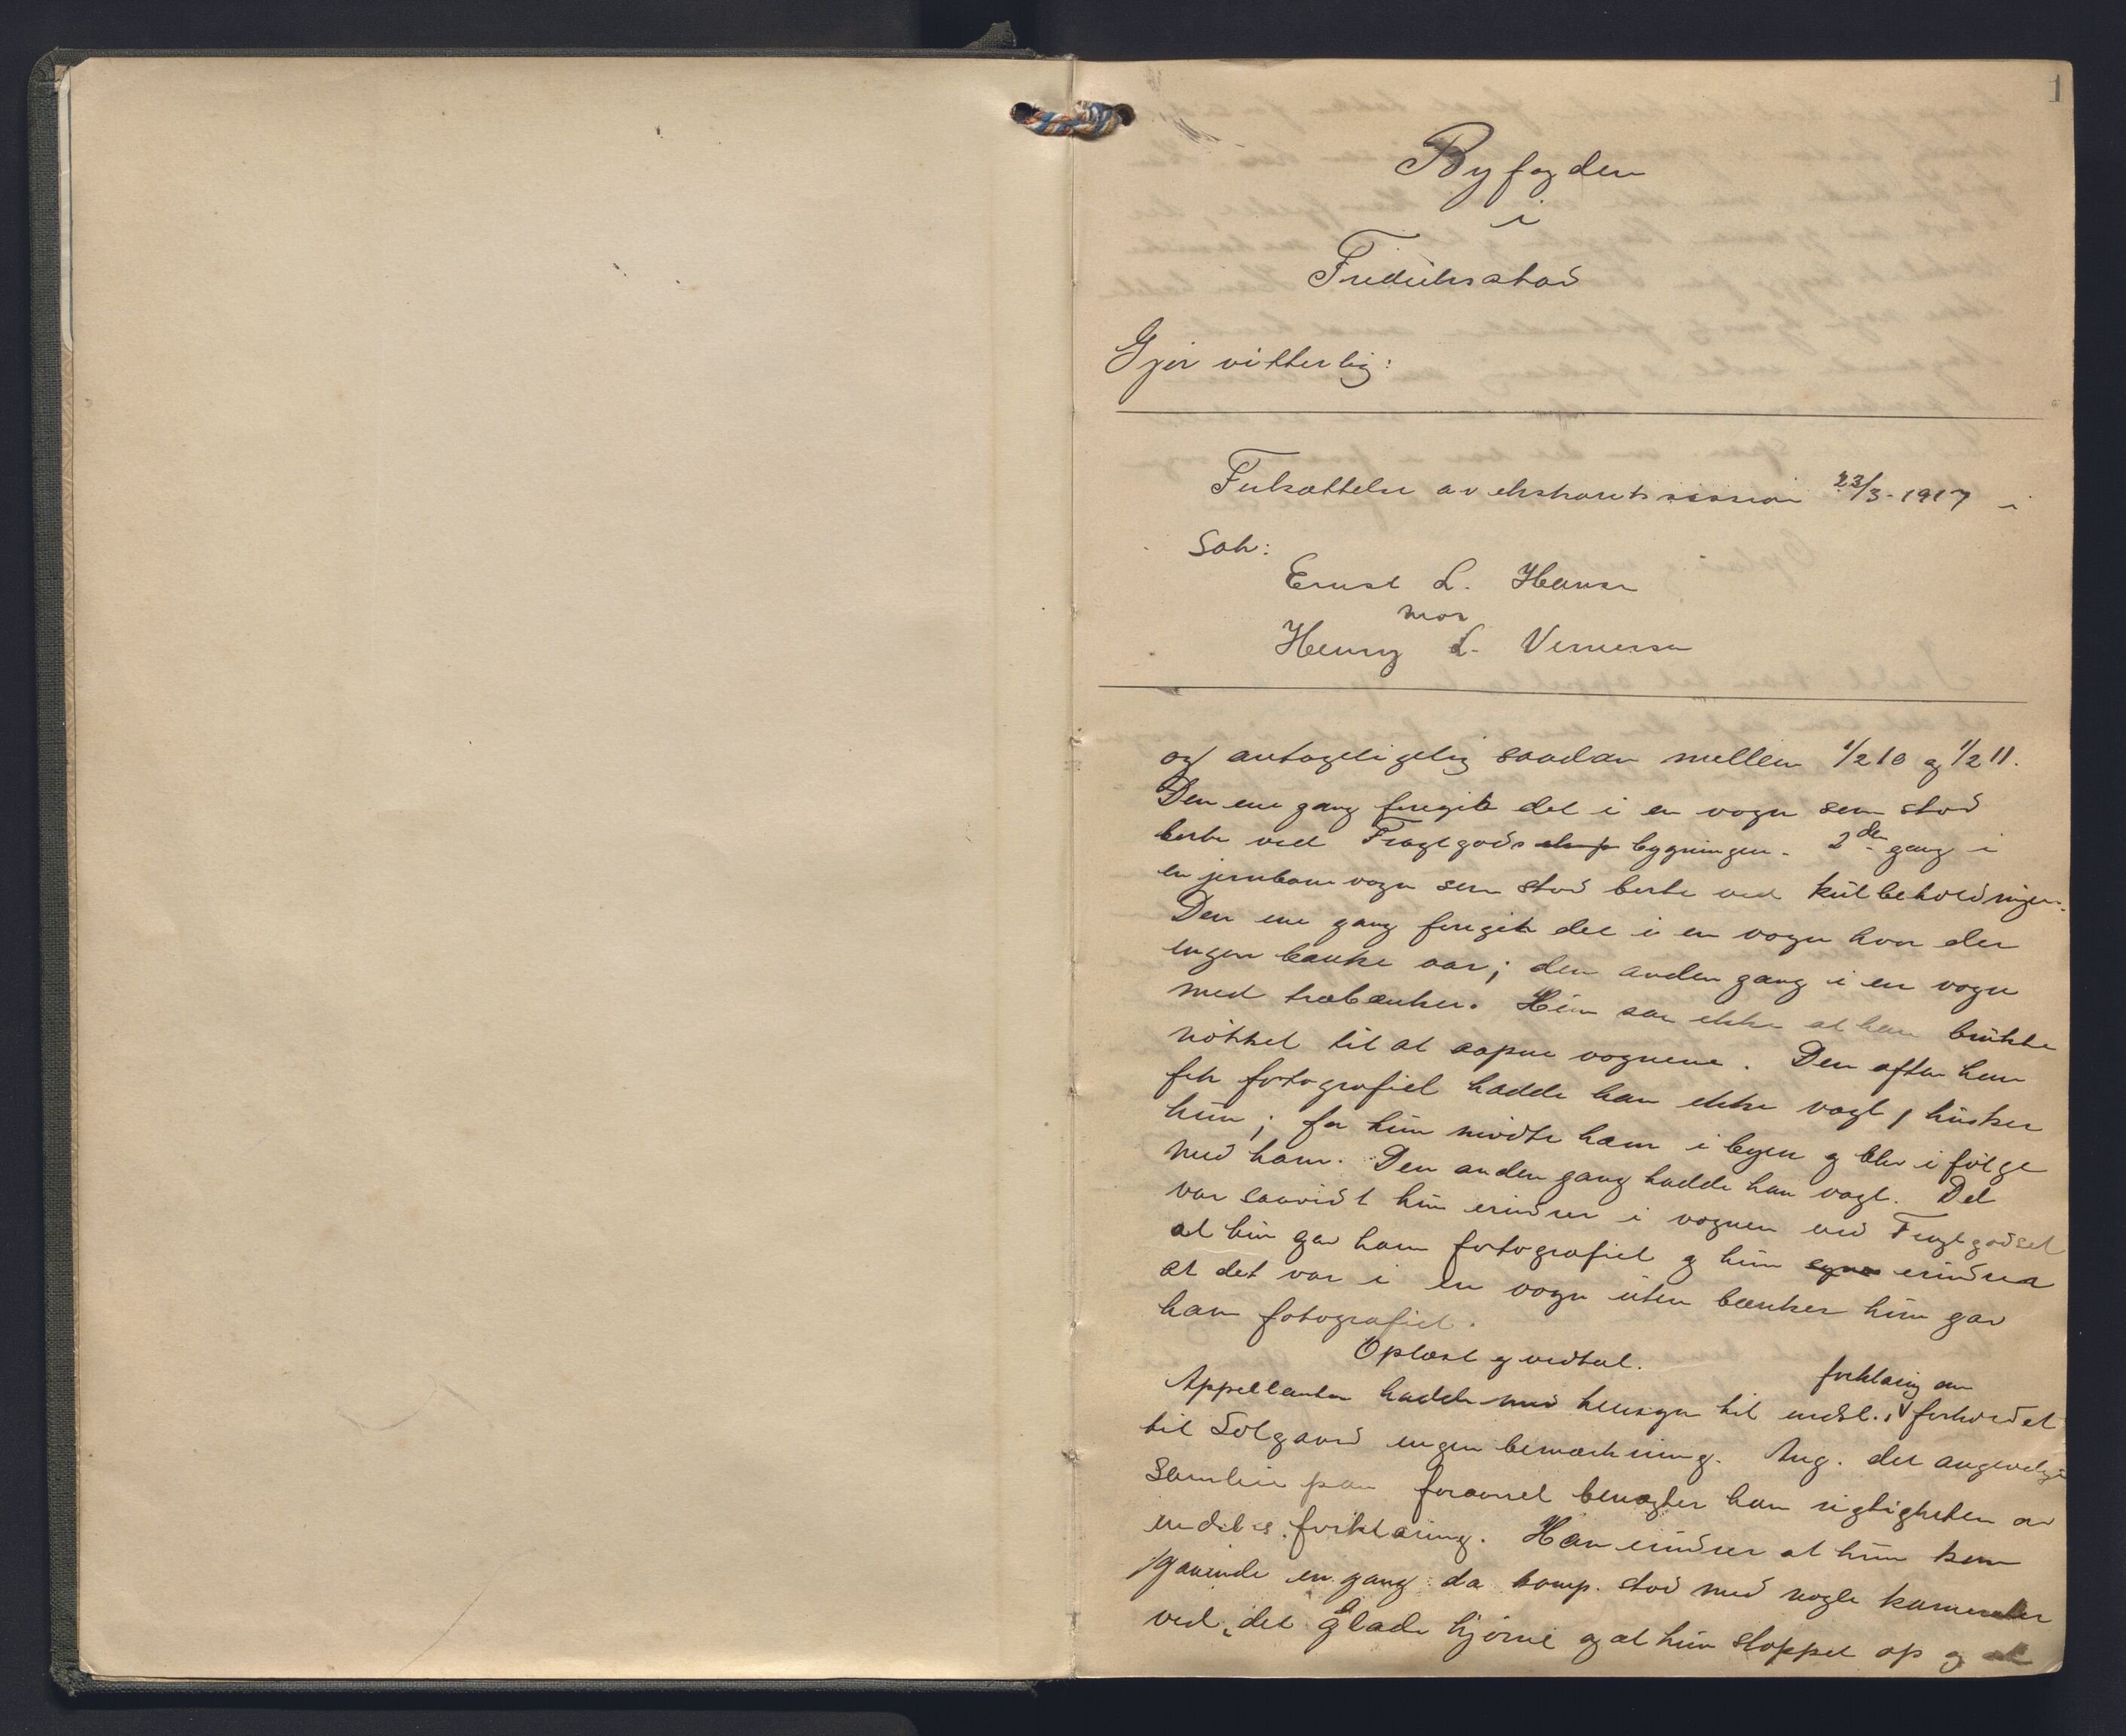 1
Byfogden
i
Fredriksstad
Gjør vitterlig:
Fortsættelse av ekstraretssession 23/3-1917 i
Sak:
Ernst L. Hansen
mot
Henry L. Vernersen
og antageligvis saadan mellem 1/2 10 og 1/2 11.
Den ene gang foregik det i en vogn som stod
borte ved Fragtgods bygningen. 2den gang i
en jernbanevogn som stod borte ved kulbeholdningen.
Den ene gang foregik det i en vogn hvor der
ingen bænke var; den anden gang i en vogn
med træbænker. Hun saa ikke at han brukte
nökkel til at aapne vognene. Den aften han
fik fotografiet hadde han ikke vagt, husker
hun; for hun mødte ham i byen og blev i følge
med ham. Den anden gang hadde han vagt. Det
var saavidt hun erindrer i vognen ved Fragtgodset
at hun gav ham fotografiet og hun synes erindrer
at det var i en vogn uten bænker hun gav
ham fotografiet.
Oplæst og vedtat.
forklaring om
Appellanten hadde med hensyn til indst.s forhold et
til Solgaard ingen bemærkning. Ang. det angivelige
Samleie paa foraaret benegter han rigtigheten av
indst.s forklaring. Han erindrer at hun kom
gaaende en gang da komp. stod med nogle kamerater
ved "det glade hjörne" og at hun stoppet op og